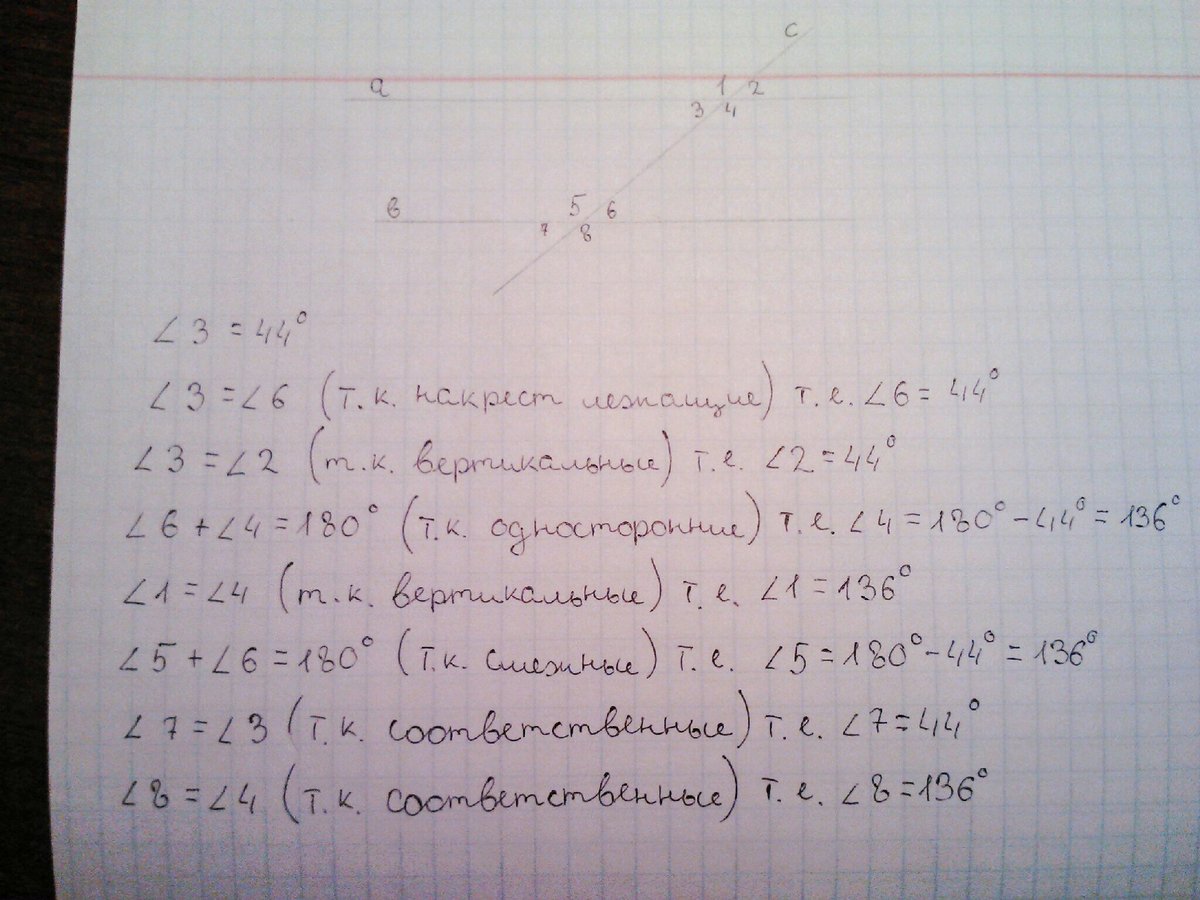 c
a 1 2
3 4
в 5 6
7 8
∠3 = 44°
∠3 = ∠6 (т.к. накрест лежащие) т.е. ∠6 = 44°
∠3 = ∠2 (т.к. вертикальные) т.е. ∠2 = 44°
∠6 + ∠4 = 180° (т.к. односторонние) т.е. ∠4 = 180° - 44° = 136°
∠1 = ∠4 (т.к. вертикальные) т.е. ∠1 = 136°
∠5 + ∠6 = 180° (т.к. смежные) т.е. ∠5 = 180° - 44° = 136°
∠7 = ∠3 (т.к. соответственные) т.е. ∠7 = 44°
∠8 = ∠4 (т.к. соответственные) т.е. ∠8 = 136°